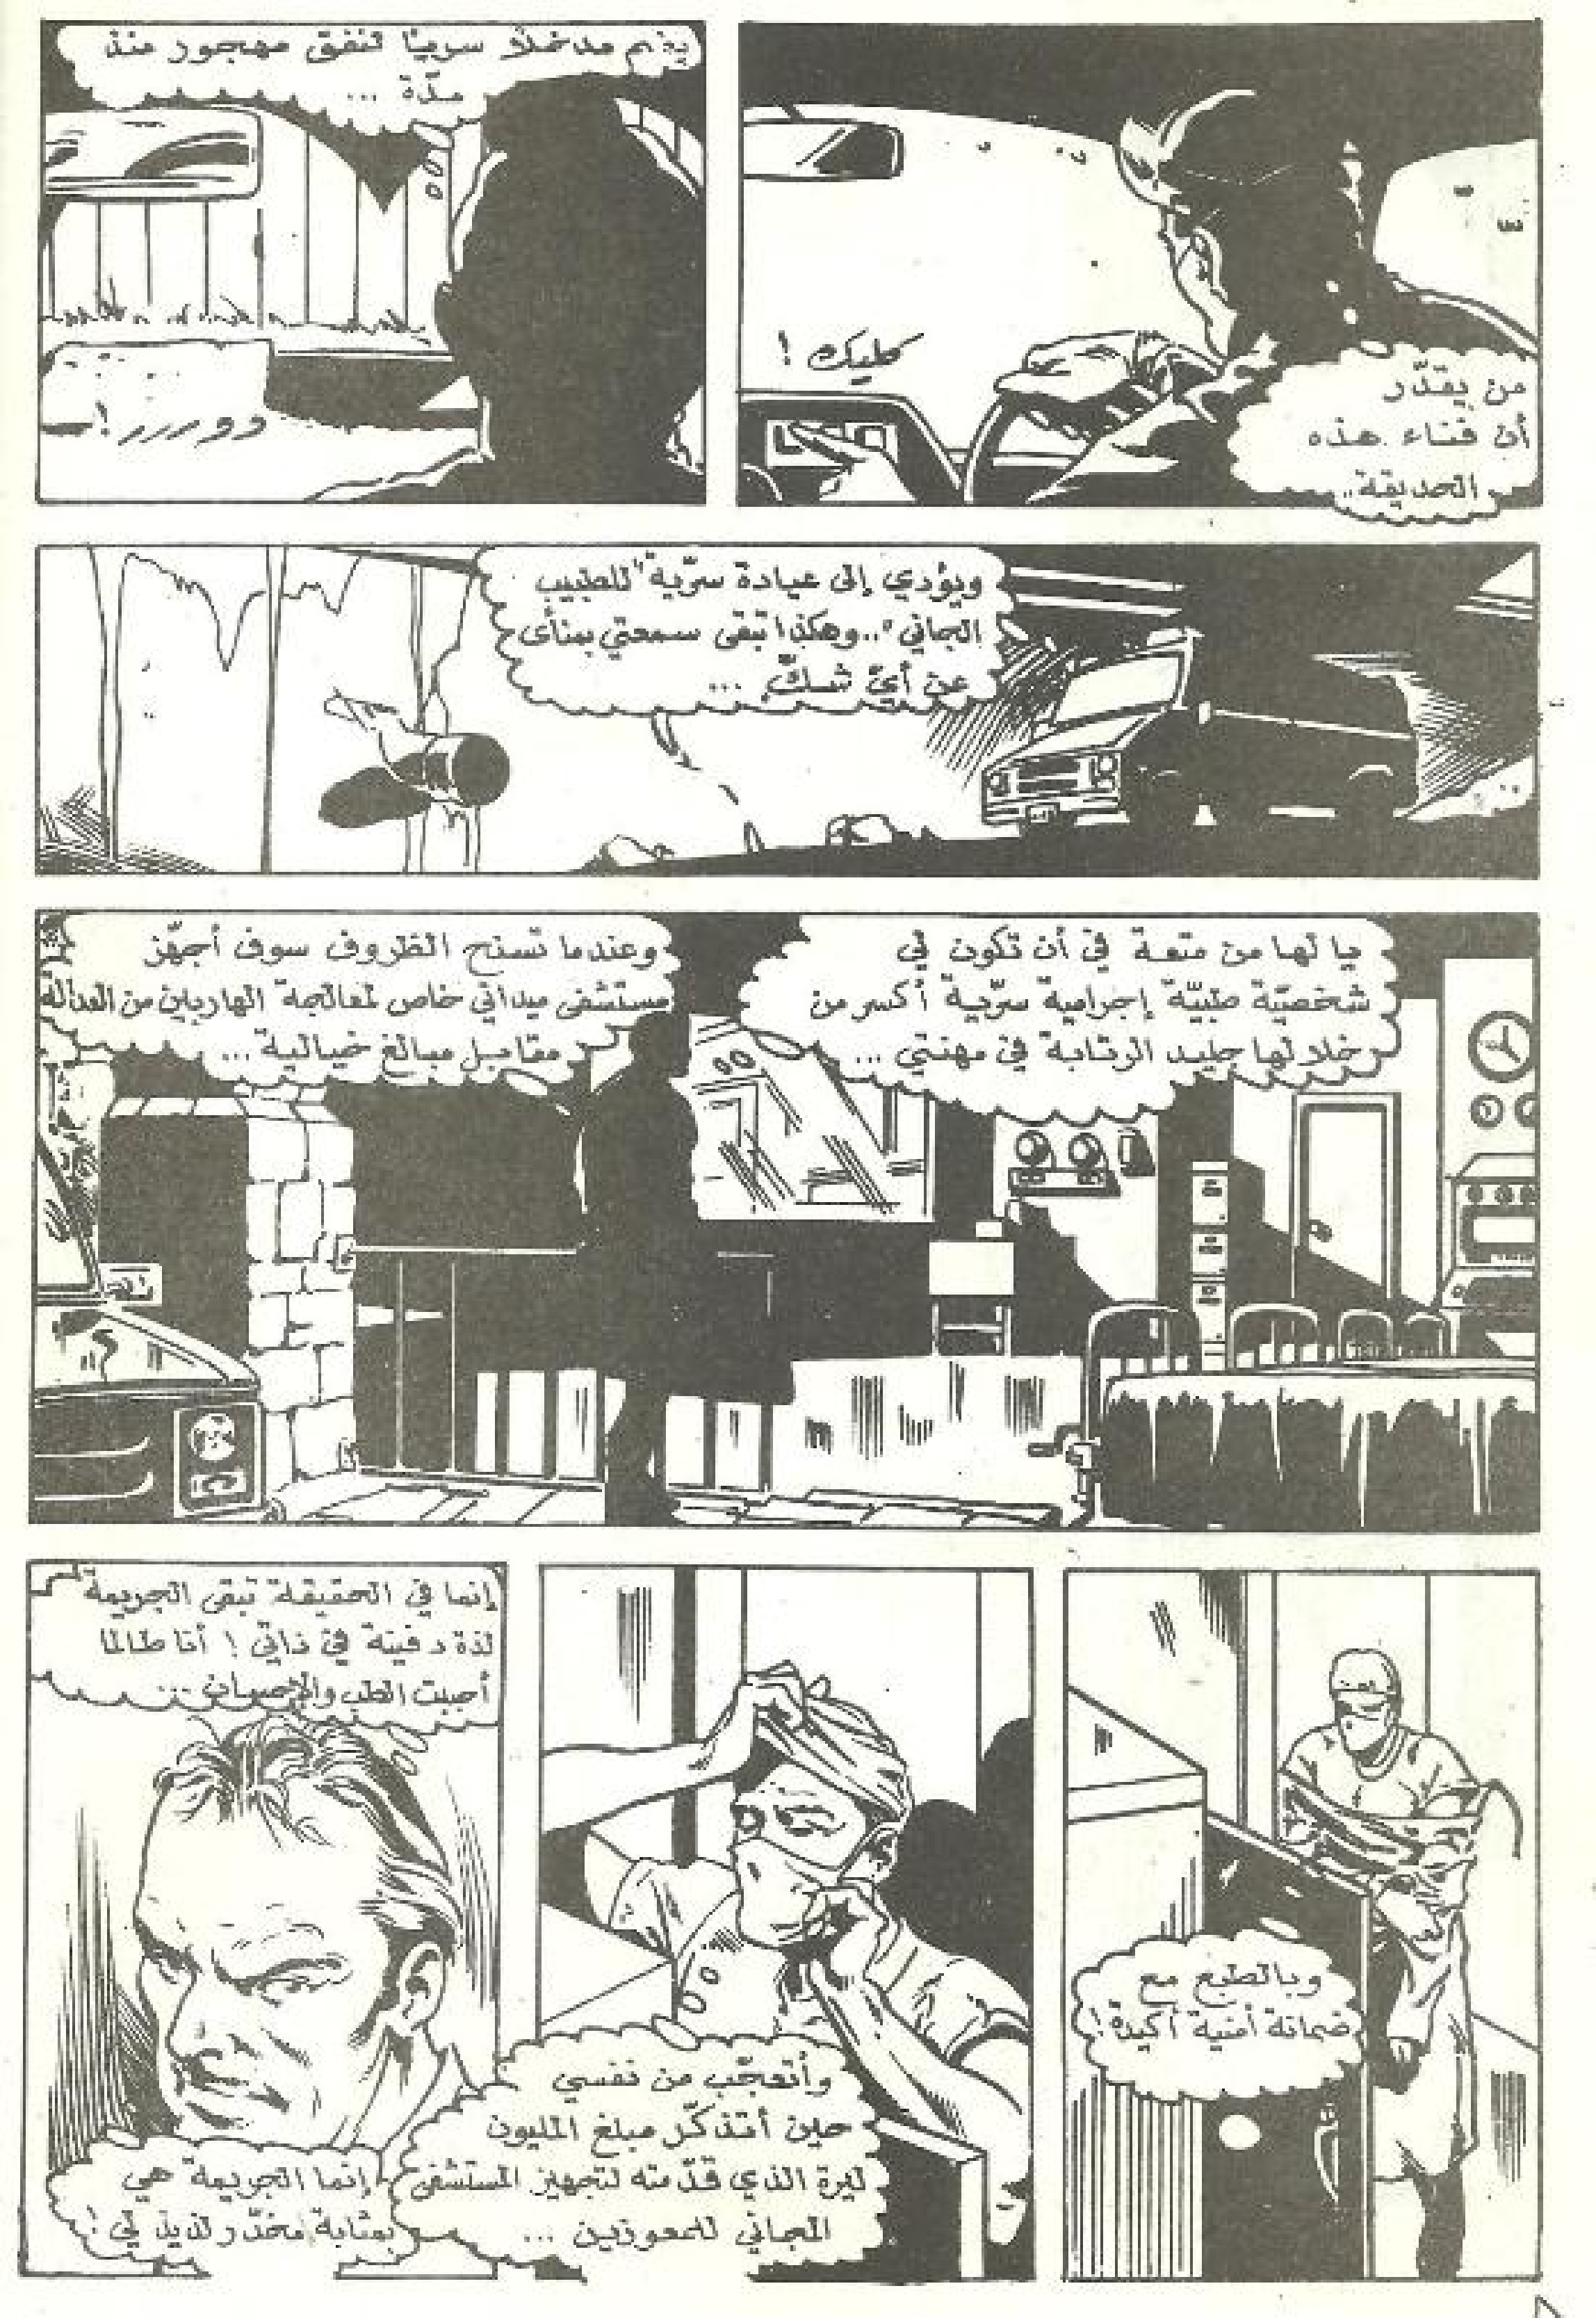 من يقدّر
أن فناء هذه
الحديقة..
كليك !
يضم مدخلاً سريًا لنفق مهجور منذ
مدّة ...
دووررر !
ويؤدي إلى عيادة سرّية "للطبيب
الجاني"..وهكذا تبقى سمعتي بمنأى
عن أيّ شكّ ...
يا لها من متعة في أن تكون لي
شخصيّة طبيّة إجرامية سرّية أكسر من
خلالها جليد الرتابة في مهنتي ...
وعندما تسنح الظروف سوف أجهّز
مستشفى ميداني خاص لمعالجة الهاربين من العدالة
مقابل مبالغ خيالية ...
وبالطبع مع
ضمانة أمنية أكيدة !
وأتعجّب من نفسي
حين أتذكّر مبلغ المليون
ليرة الذي قدّمته لتجهيز المستشفى
المجاني للمعوزين ...
إنما في الحقيقة تبقى الجريمة
لذة دفينة في ذاتي ! أنا طالما
أحببت الطب والإحسان ...
إنما الجريمة هي
بمثابة مخدّر لذيذ لي !